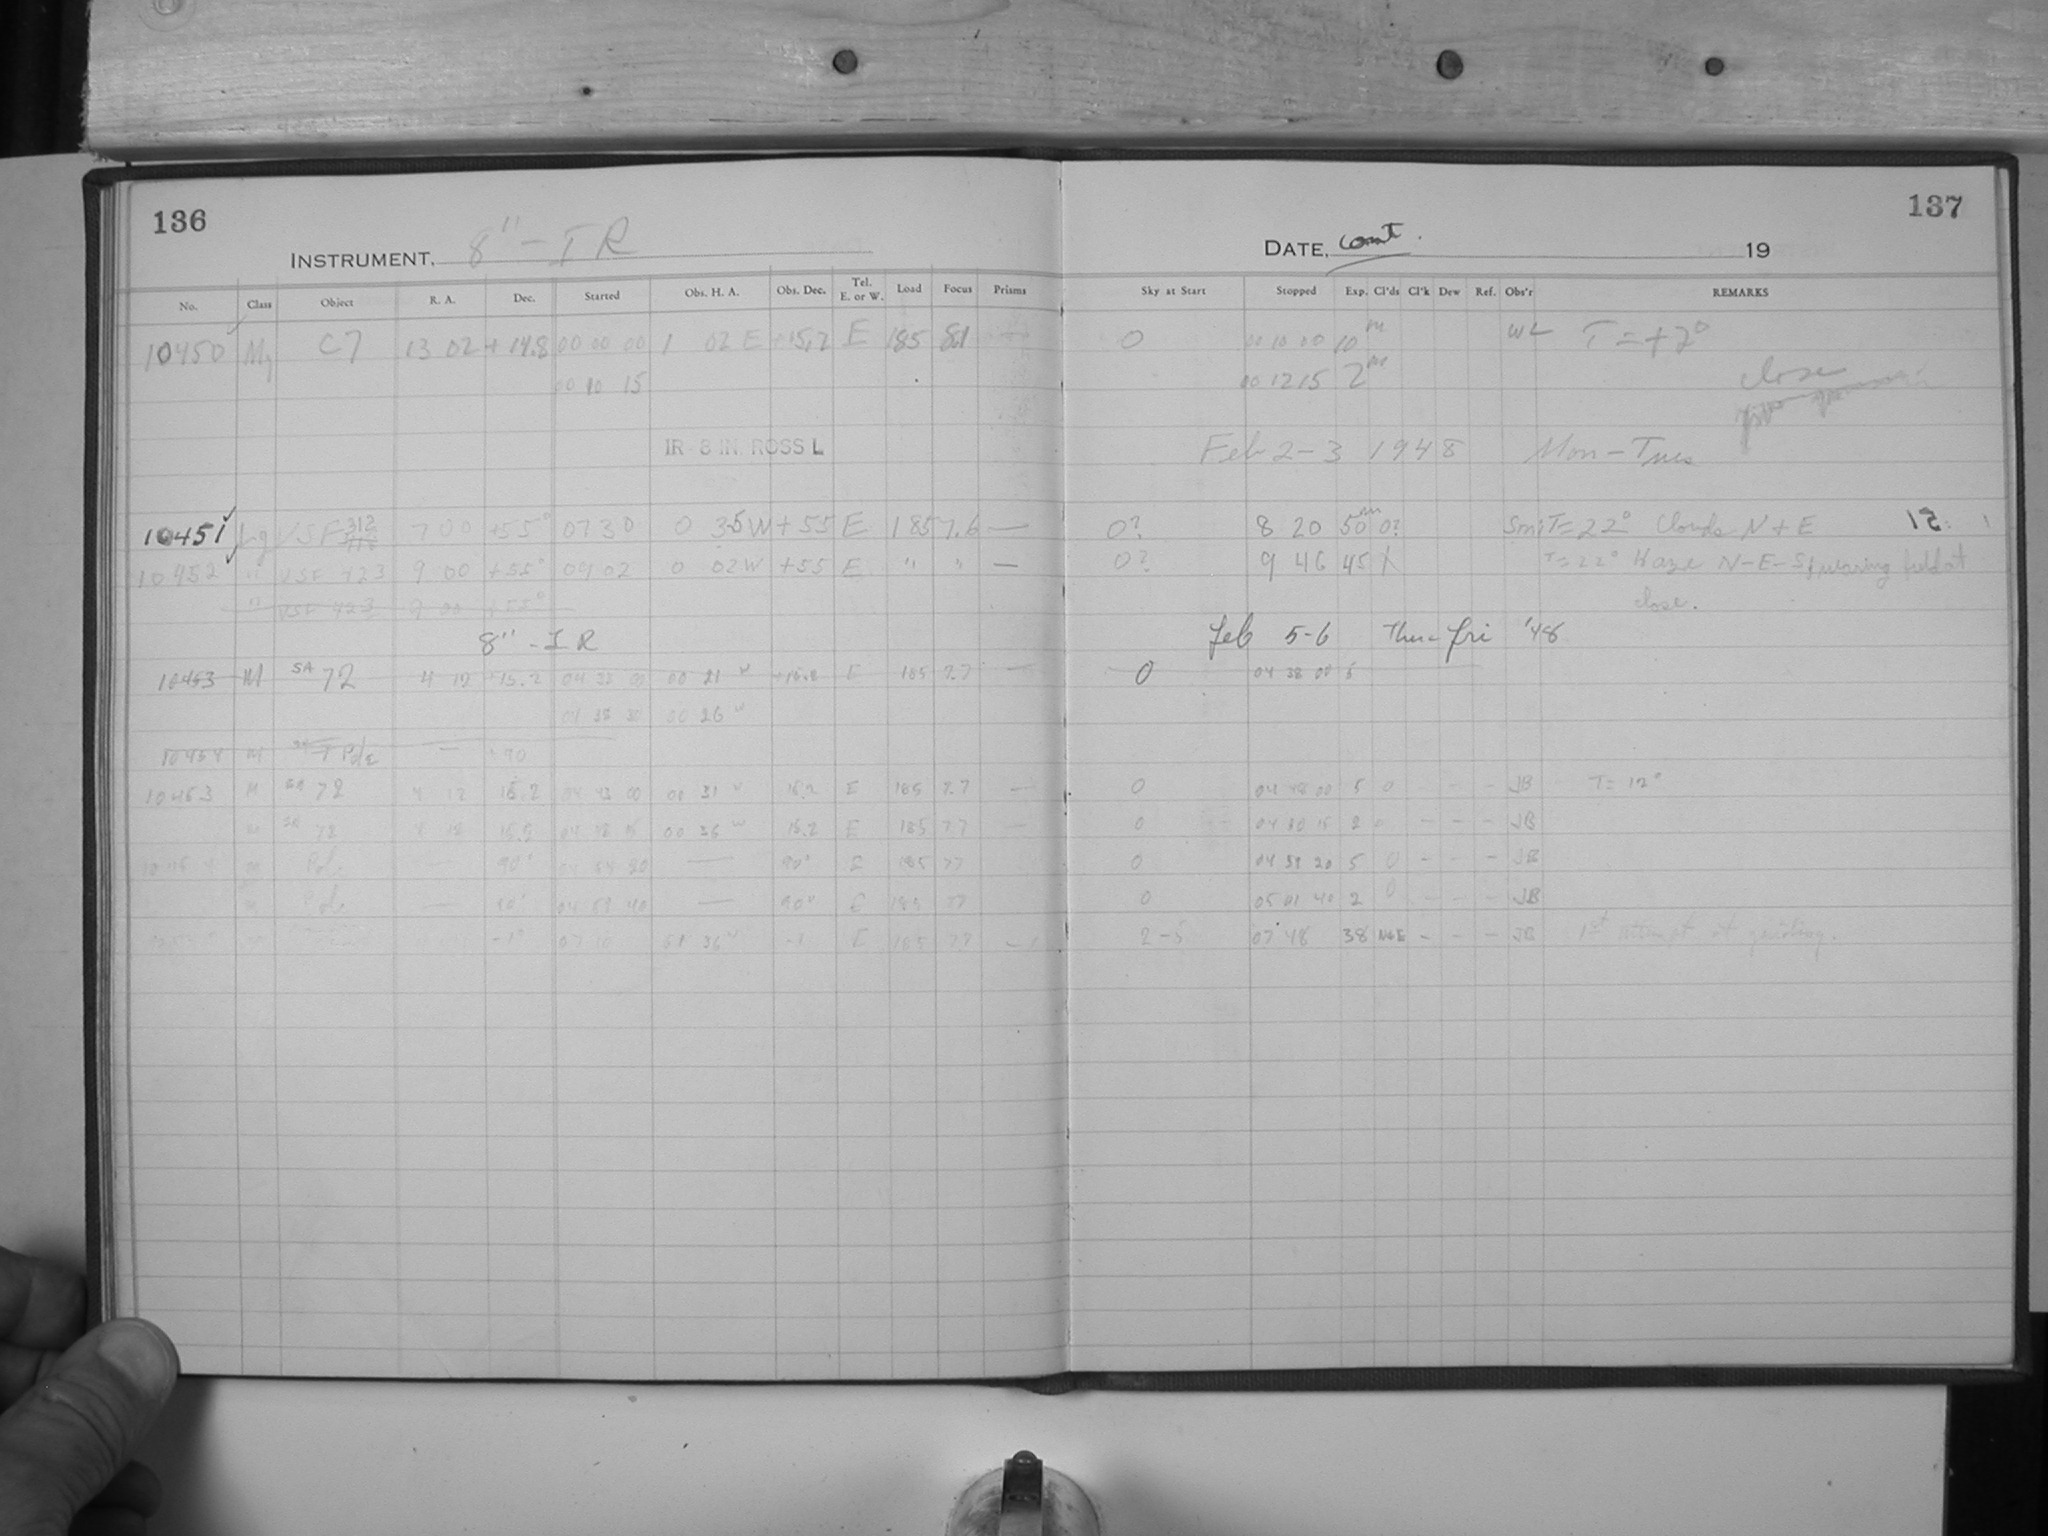 136
INSTRUMENT, 8" - IR
No. Class Object R. A. Dec. Started Obs. H. A. Obs. Dec. Tel. E. or W. Load Focus Prisms
10450 C7 13 02 + 14.8 00 00 00 1 02 E +15.2 E 185 8.1 —
00 10 15
IR-8 IN. ROSS L
10451 VSF 312 7 00 +55° 07 30 0 35 W +55 E 185 7.6 —
10452 " VSF 423 9 00 +55° 09 02 0 02 W +55 E " " —
" VSF 423 9 00 +55°
8" - IR
10453 M SA 72 4 12 +15.2 04 33 00 00 21 W E 185 7.7 —
00 26 W
10454 M Pole — +90
10453 M SA 72 4 12 15.2 04 43 00 00 31 W 15.2 E 185 7.7 —
M SA 72 4 12 15.2 00 36 W 15.2 E 185 7.7 —
M Pole — 90° 04 54 20 — 90° E 185 77
M Pole — 90° 04 59 40 — 90° E 185 77
-1° 07 10 36 W E 185 77 —
137
DATE, cont. 19
Sky at Start Stopped Exp. Cl'ds Cl'k Dew Ref. Obs'r REMARKS
0 00 10 00 10m WL T = +2°
00 12 15 2m close
Feb 2-3 1948 Mon - Tues
0? 8 20 50m 0? Sm T = 22° Clouds N + E 15.
0? 9 46 45 T = 22° Haze N-E-S, nearing field at
close.
Feb 5-6 Thu - Fri '48
0 04 38 00 5
0 04 48 00 5 0 - - JB T = 12°
0 04 50 15 2 0 - - - JB
0 04 59 20 5 0 - - - JB
0 05 01 40 2 0 - - - JB
2-5 07 48 38 N&E - - - JB 1st attempt at guiding.